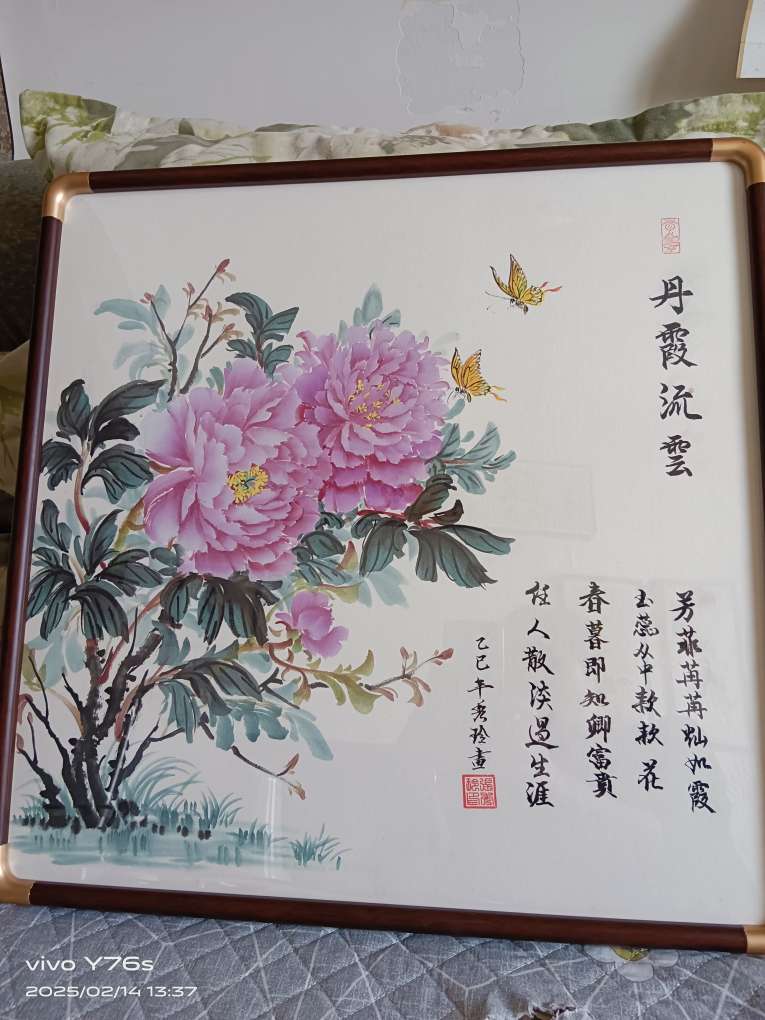 丹霞流雲
芳菲苒苒灿如霞
玉蕊从中款款花
春暮即知卿富貴
任人散淡过生涯
乙巳年秀玲畫
vivo Y76s
2025/02/14 13:37